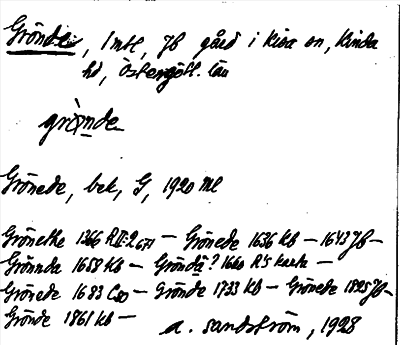 Grönde, 1 mtl, Jb gård i Kisa sn, Kinda
hd, Östergötl. län
grønde
Grönede, bek, G, 1920 ml
Grönethe 1366 RII:2 671 — Grönede 1636 Kb — 1643 Jb —
Grönnda 1658 Kb — Grönda? 1660 RS karta —
Grönede 1683 C80 — Grönde 1733 Kb — Grönede 1825 Jb —
Grönde 1861 Kb —
A. Sandström, 1928